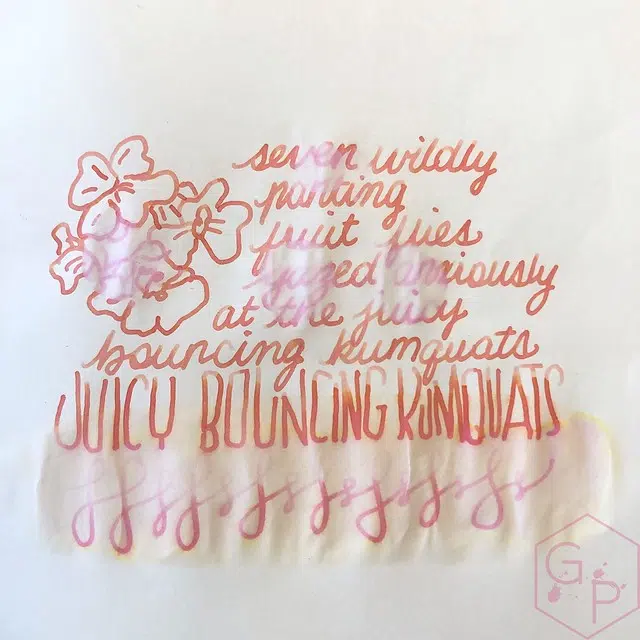 seven wildly
panting
fruit flies
gazed anxiously
at the juicy
bouncing kumquats
JUICY BOUNCING KUMQUATS
G
P